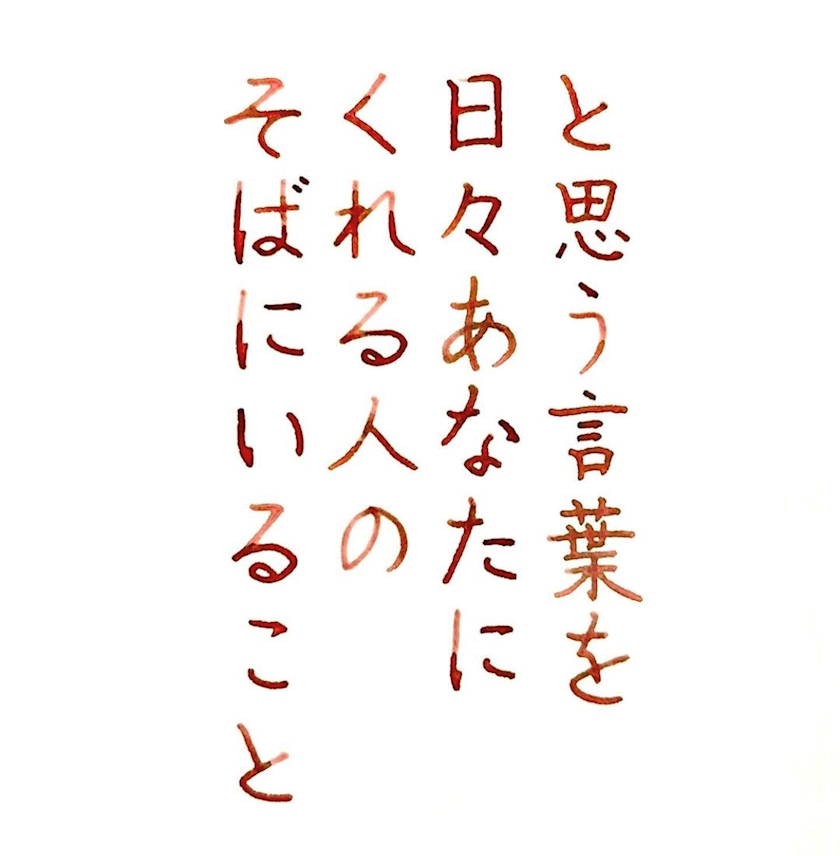 と思う言葉を
日々あなたに
くれる人の
そばにいること